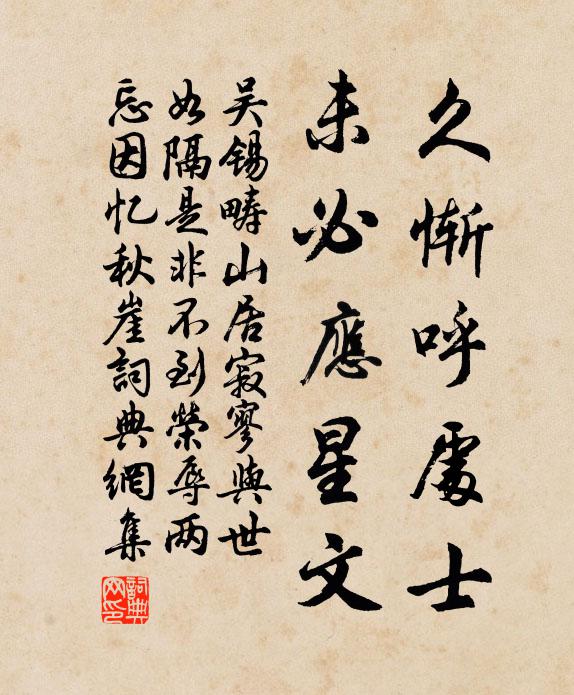 久惭呼處士
未必應星文
吴锡畴山居寂寥與世
如隔是非不到榮辱两
忘因忆秋崖詞典網集
詞典网印